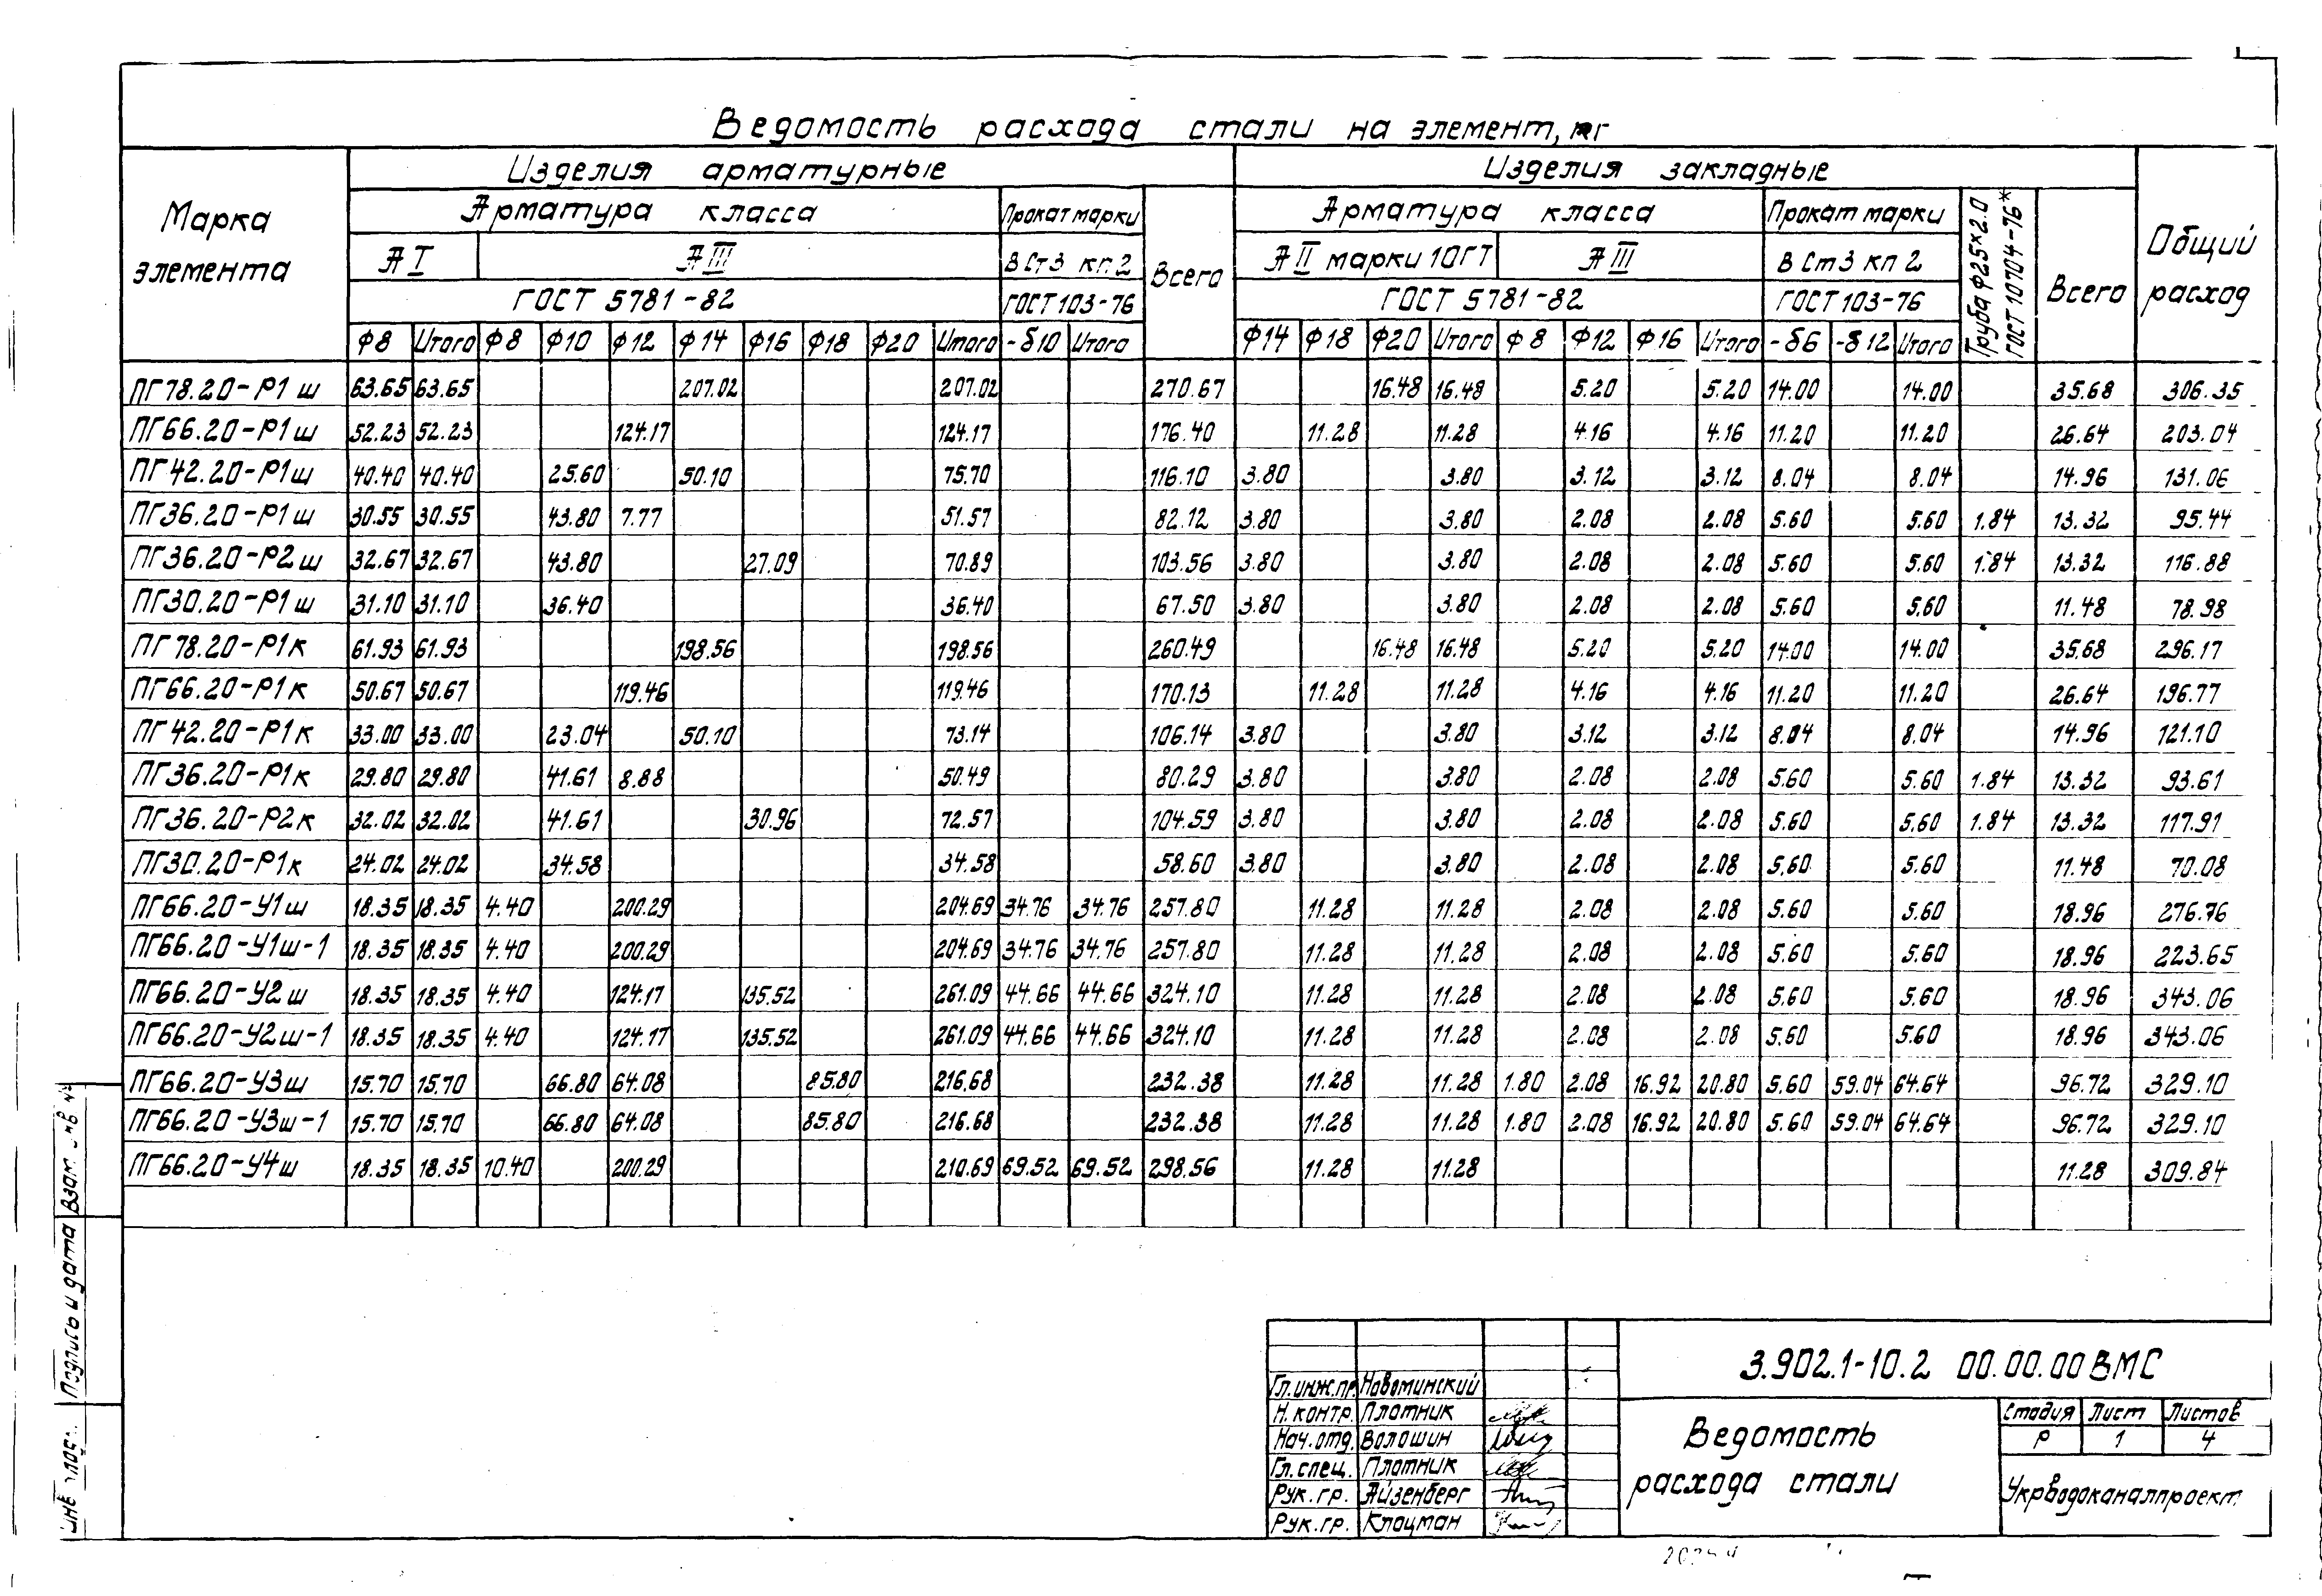 Ведомость расхода стали на элемент, кг
Марка элемента
Изделия арматурные
Изделия закладные
Общий расход
Арматура класса
Прокат марки
Всего
Арматура класса
Прокат марки
Труба Ф25×2.0 ГОСТ 10704-76*
Всего
А I
А III
ВСт3 кп2
А II марки 10ГТ
А III
ВСт3 кп2
ГОСТ 5781-82
ГОСТ 103-76
ГОСТ 5781-82
ГОСТ 103-76
Ф8 Итого Ф8 Ф10 Ф12 Ф14 Ф16 Ф18 Ф20 Итого -δ10 Итого Ф14 Ф18 Ф20 Итого Ф8 Ф12 Ф16 Итого -δ6 -δ12 Итого
ПГ78.20-Р1ш 63.65 63.65 207.02 207.02 270.67 16.48 16.48 5.20 5.20 14.00 14.00 35.68 306.35
ПГ66.20-Р1ш 52.23 52.23 124.17 124.17 176.40 11.28 11.28 4.16 4.16 11.20 11.20 26.64 203.04
ПГ42.20-Р1ш 40.40 40.40 25.60 50.10 75.70 116.10 3.80 3.80 3.12 3.12 8.04 8.04 14.96 131.06
ПГ36.20-Р1ш 30.55 30.55 43.80 7.77 51.57 82.12 3.80 3.80 2.08 2.08 5.60 5.60 1.84 13.32 95.44
ПГ36.20-Р2ш 32.67 32.67 43.80 27.09 70.89 103.56 3.80 3.80 2.08 2.08 5.60 5.60 1.84 13.32 116.88
ПГ30.20-Р1ш 31.10 31.10 36.40 36.40 67.50 3.80 3.80 2.08 2.08 5.60 5.60 11.48 78.98
ПГ78.20-Р1к 61.93 61.93 198.56 198.56 260.49 16.48 16.48 5.20 5.20 14.00 14.00 35.68 296.17
ПГ66.20-Р1к 50.67 50.67 119.46 119.46 170.13 11.28 11.28 4.16 4.16 11.20 11.20 26.64 196.77
ПГ42.20-Р1к 33.00 33.00 23.04 50.10 73.14 106.14 3.80 3.80 3.12 3.12 8.04 8.04 14.96 121.10
ПГ36.20-Р1к 29.80 29.80 41.61 8.88 50.49 80.29 3.80 3.80 2.08 2.08 5.60 5.60 1.84 13.32 93.61
ПГ36.20-Р2к 32.02 32.02 41.61 30.96 72.57 104.59 3.80 3.80 2.08 2.08 5.60 5.60 1.84 13.32 117.91
ПГ30.20-Р1к 24.02 24.02 34.58 34.58 58.60 3.80 3.80 2.08 2.08 5.60 5.60 11.48 70.08
ПГ66.20-У1ш 18.35 18.35 4.40 200.29 204.69 34.76 34.76 257.80 11.28 11.28 2.08 2.08 5.60 5.60 18.96 276.76
ПГ66.20-У1ш-1 18.35 18.35 4.40 200.29 204.69 34.76 34.76 257.80 11.28 11.28 2.08 2.08 5.60 5.60 18.96 223.65
ПГ66.20-У2ш 18.35 18.35 4.40 124.17 135.52 261.09 44.66 44.66 324.10 11.28 11.28 2.08 2.08 5.60 5.60 18.96 343.06
ПГ66.20-У2ш-1 18.35 18.35 4.40 124.17 135.52 261.09 44.66 44.66 324.10 11.28 11.28 2.08 2.08 5.60 5.60 18.96 343.06
ПГ66.20-У3ш 15.70 15.70 66.80 64.08 85.80 216.68 232.38 11.28 11.28 1.80 2.08 16.92 20.80 5.60 59.04 64.64 96.72 329.10
ПГ66.20-У3ш-1 15.70 15.70 66.80 64.08 85.80 216.68 232.38 11.28 11.28 1.80 2.08 16.92 20.80 5.60 59.04 64.64 96.72 329.10
ПГ66.20-У4ш 18.35 18.35 10.40 200.29 210.69 69.52 69.52 298.56 11.28 11.28 11.28 309.84
Подпись и дата
3.902.1-10.2 00.00.00ВМС
Гл.инж.пр. Новоминский
Н.контр. Плотник
Нач.отд. Волошин
Гл.спец. Плотник
Рук.гр. Айзенберг
Рук.гр. Клоцман
Ведомость расхода стали
Стадия Лист Листов
Р 1 4
Укрводоканалпроект